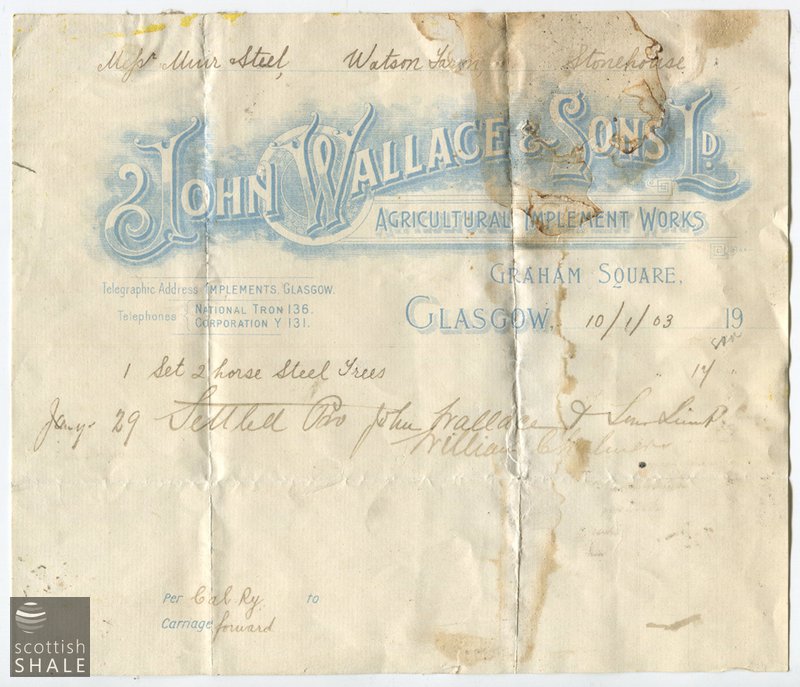 Messrs Muir Steel, Watson Farm, Stonehouse
JOHN WALLACE & SONS LD.
AGRICULTURAL IMPLEMENT WORKS
GRAHAM SQUARE,
Telegraphic Address IMPLEMENTS, GLASGOW.
Telephones NATIONAL TRON 136.
CORPORATION Y 131.
GLASGOW, 10/1/03 19
1 Set 2 horse Steel Trees " 14 "
Jany 29 Settled Pro John Wallace & Sons Limd.
William Chalmers
Per Cal Ry. to
Carriage forward
scottish
SHALE